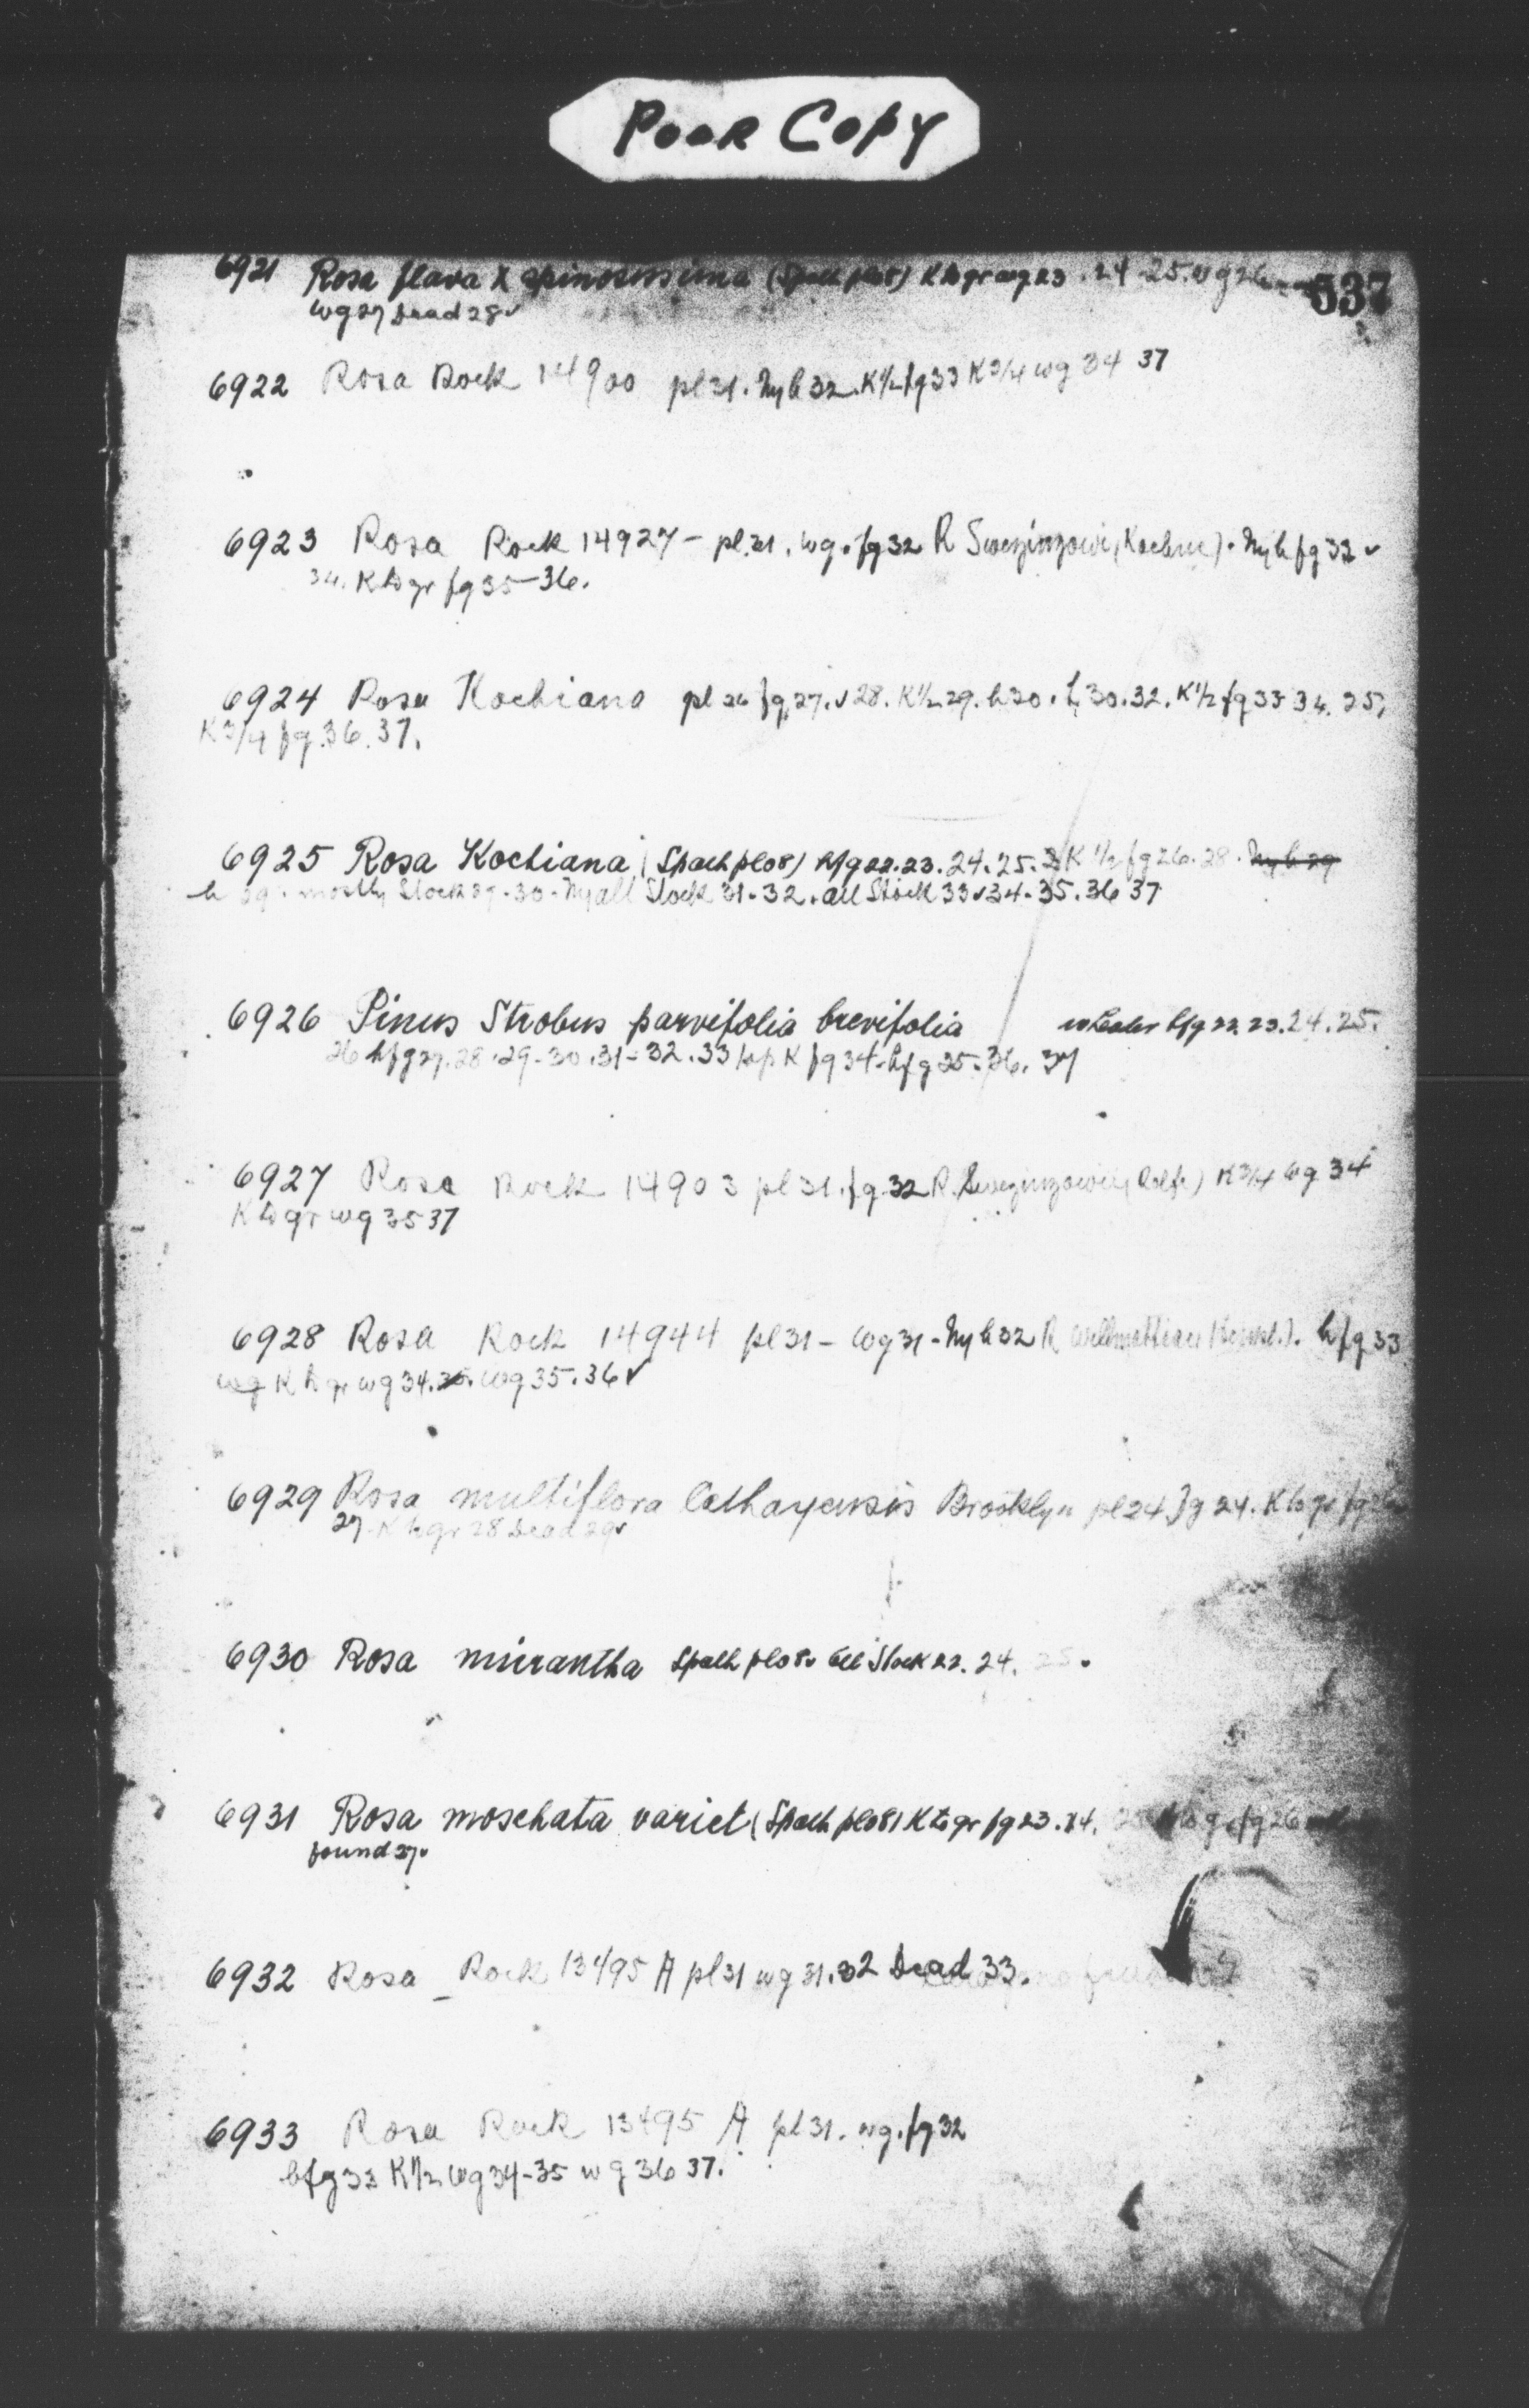 Poor Copy
537
6921 Rosa flava x spinosissima (Spath pl08) K to gr wg 23. 24. 25. wg 26
wg 27 Dead 28 ✓
6922 Rosa Rock 14900 pl 31. Ny h 32. K 1/2 fg 33 K 3/4 wg 34 37
6923 Rosa Rock 14927 - pl. 31. wg. fg 32 R Sweginzowi (Koehne). Ny h fg 33 ✓
34. K to gr fg 35-36.
6924 Rosa Kochiana pl 26 fg. 27. ✓ 28. K 1/2 29. h 30. 32. K 1/2 fg 33 34. 35,
K 3/4 fg. 36. 37.
6925 Rosa Kochiana (Spath pl08) hfg 22. 23. 24. 25. K 1/2 fg 26. 28. Ny h 29
h 29. mostly Stock 29-30-Ny all Stock 31-32. all Stock 33 ✓ 34-35. 36 37
6926 Pinus Strobus parvifolia brevifolia hfg 22. 23. 24. 25.
26 hfg 27. 28. 29-30. 31-32. 33 K fg 34-hfg 35-36. 37
6927 Rosa Rock 14903 pl 31. fg. 32 R. Sweginzowii (Rolfe) K 3/4 wg 34
K to gr wg 35 37
6928 Rosa Rock 14944 pl 31 - wg 31 - Ny h 32 R Willmottiae (Hemsl.). hfg 33
wg K to gr wg 34. 35. wg 35. 36 ✓
6929 Rosa multiflora Cathayensis Brooklyn pl 24 fg 24. K to gr fg
27-K to gr 28 Dead 29 ✓
6930 Rosa micrantha Spath pl08. all Stock 22. 24. 25.
6931 Rosa moschata variet (Spath pl08) K to gr fg 23. 24. fg 26
found 27.
6932 Rosa - Rock 13495 A pl 31 wg 31. 32 Dead 33.
6933 Rosa Rock 13495 A pl 31. wg. fg 32
hfg 33 K 1/2 wg 34-35 wg 36 37.